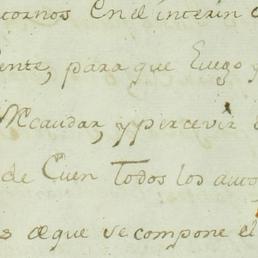 tornos En el interin
ente, para que Luego
Recaudar, y percevir
de Cuen Todos los auto
s de que se compone el